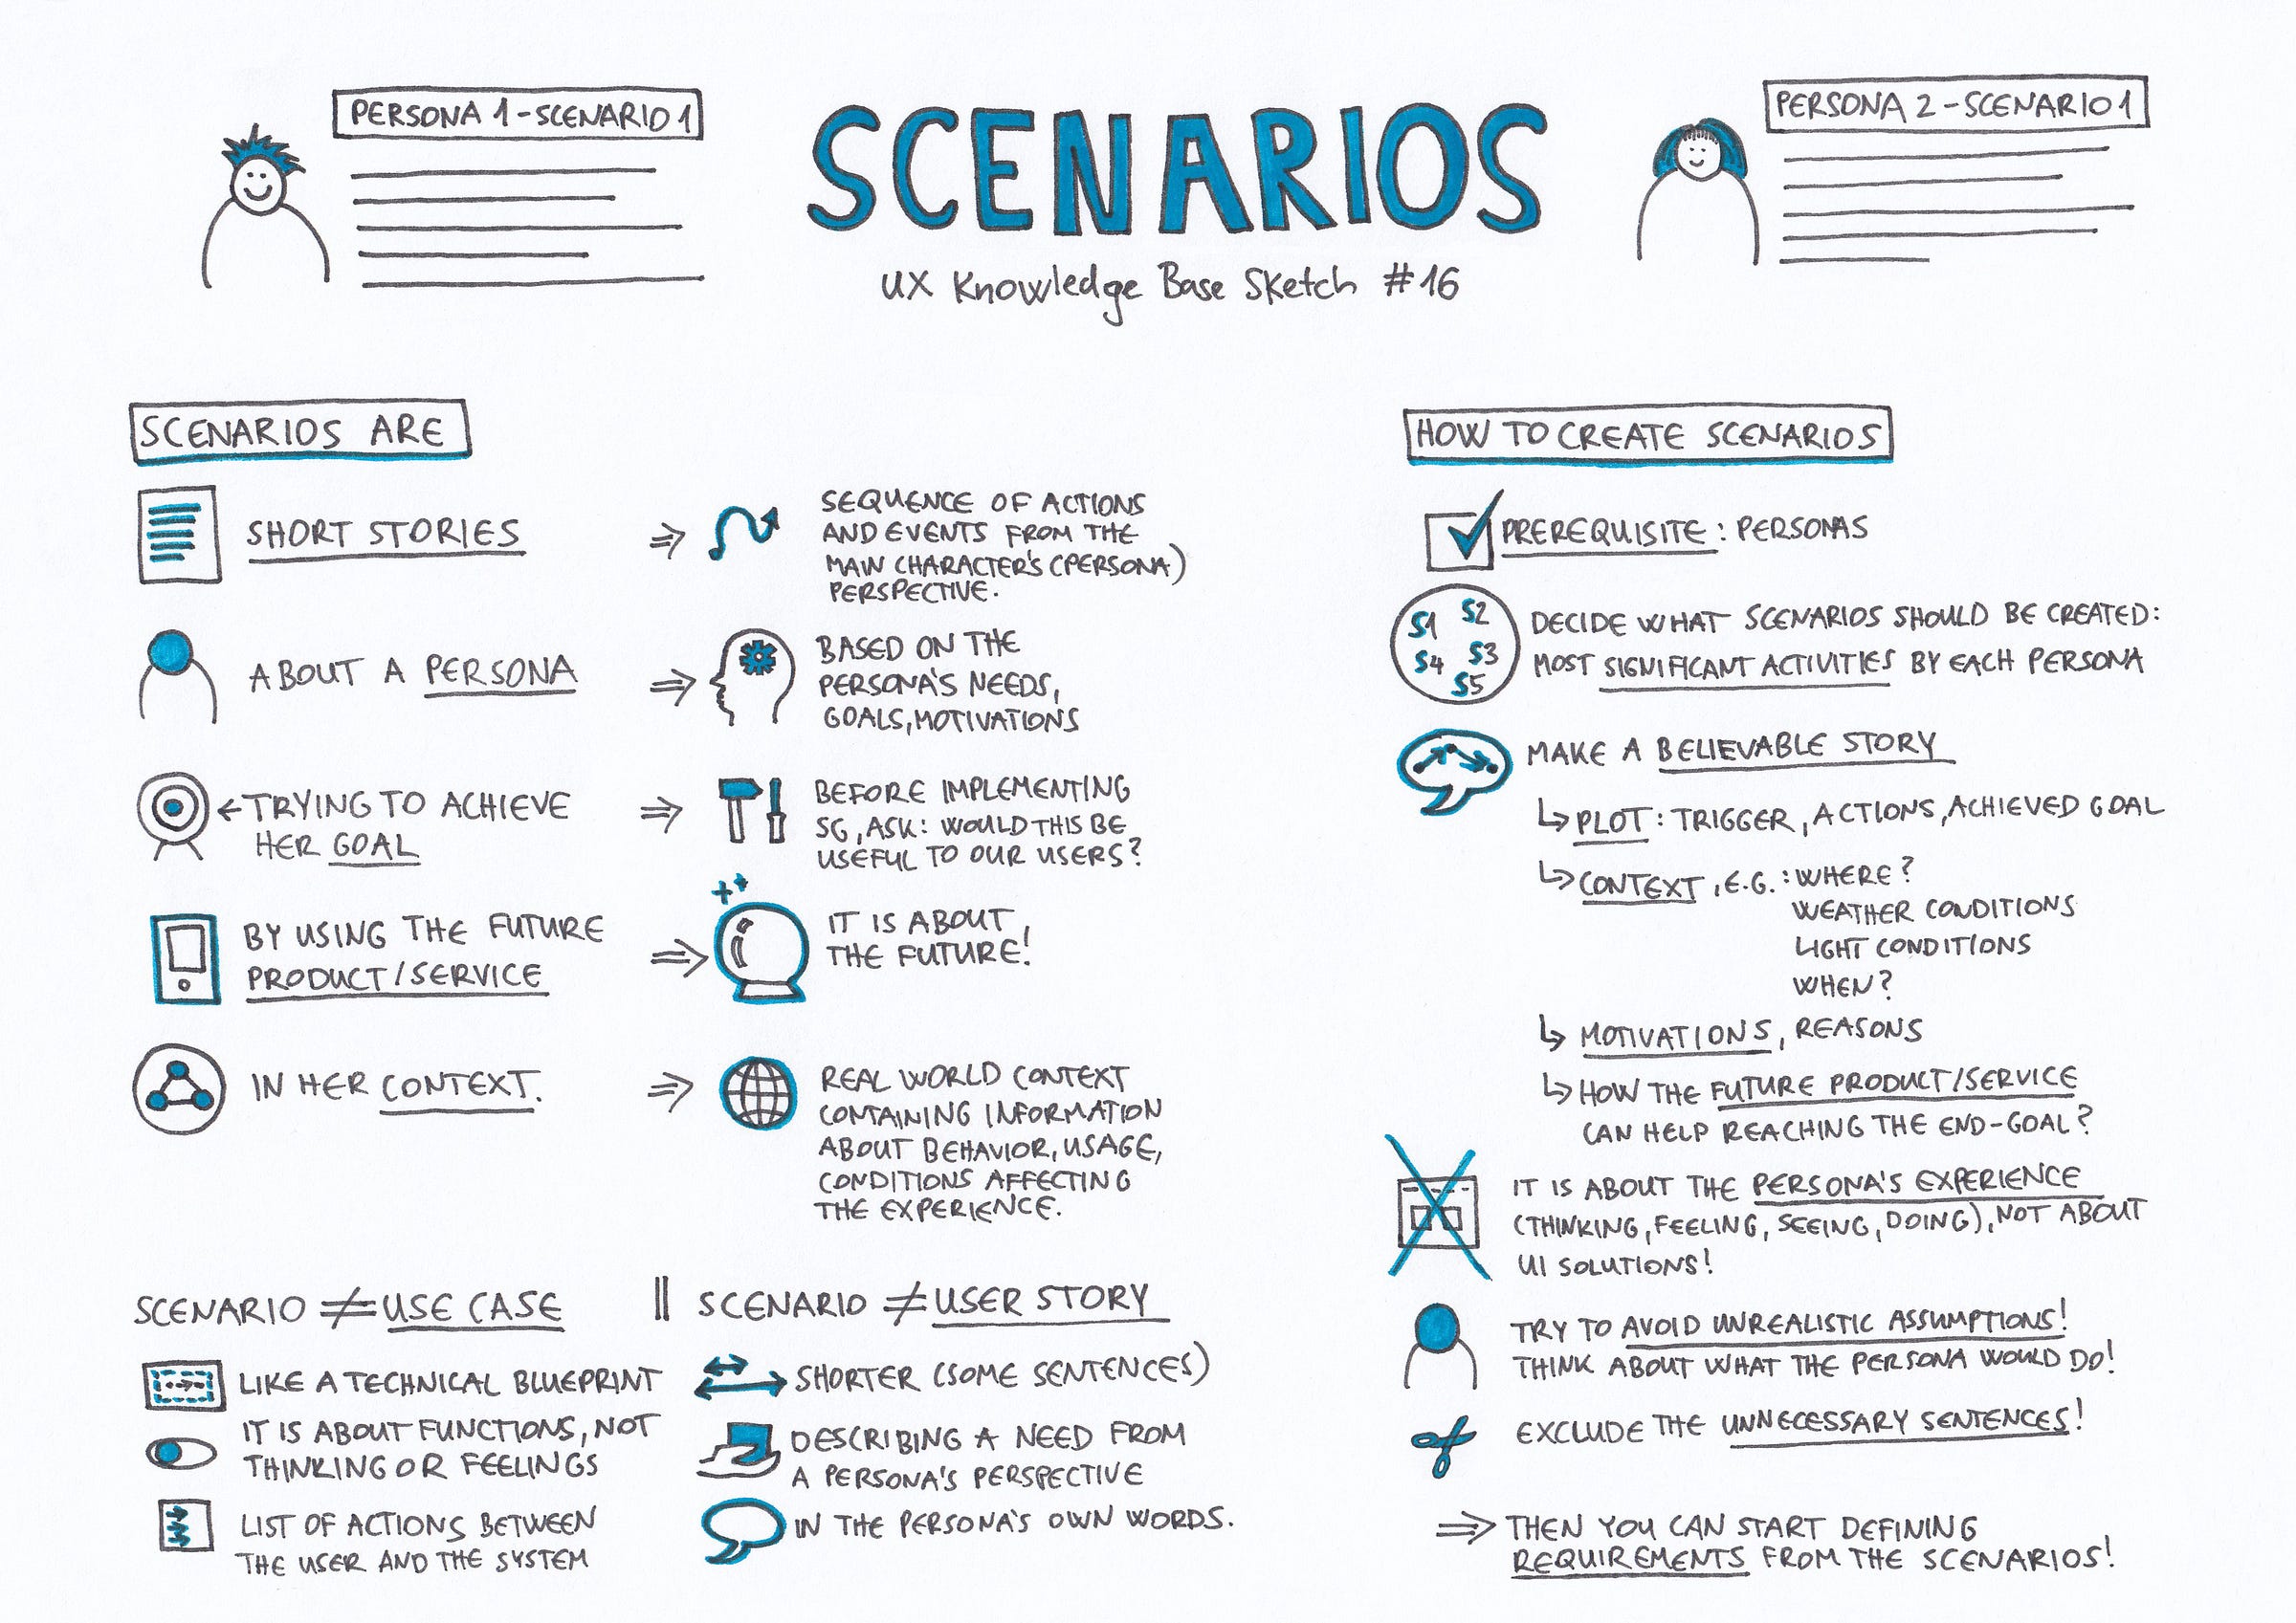 PERSONA 1 - SCENARIO 1
SCENARIOS
PERSONA 2 - SCENARIO 1
UX Knowledge Base Sketch #16
SCENARIOS ARE
SHORT STORIES
⇒ SEQUENCE OF ACTIONS
AND EVENTS FROM THE
MAIN CHARACTER'S (PERSONA)
PERSPECTIVE.
ABOUT A PERSONA
⇒ BASED ON THE
PERSONA'S NEEDS,
GOALS, MOTIVATIONS
← TRYING TO ACHIEVE
HER GOAL
⇒ BEFORE IMPLEMENTING
SG, ASK: WOULD THIS BE
USEFUL TO OUR USERS?
BY USING THE FUTURE
PRODUCT/SERVICE
⇒ IT IS ABOUT
THE FUTURE!
IN HER CONTEXT.
⇒ REAL WORLD CONTEXT
CONTAINING INFORMATION
ABOUT BEHAVIOR, USAGE,
CONDITIONS AFFECTING
THE EXPERIENCE.
SCENARIO ≠ USE CASE
LIKE A TECHNICAL BLUEPRINT
IT IS ABOUT FUNCTIONS, NOT
THINKING OR FEELINGS
LIST OF ACTIONS BETWEEN
THE USER AND THE SYSTEM
SCENARIO ≠ USER STORY
SHORTER (SOME SENTENCES)
DESCRIBING A NEED FROM
A PERSONA'S PERSPECTIVE
IN THE PERSONA'S OWN WORDS.
HOW TO CREATE SCENARIOS
PREREQUISITE: PERSONAS
S1 S2
S4 S3
S5
DECIDE WHAT SCENARIOS SHOULD BE CREATED:
MOST SIGNIFICANT ACTIVITIES BY EACH PERSONA
MAKE A BELIEVABLE STORY
↳ PLOT: TRIGGER, ACTIONS, ACHIEVED GOAL
↳ CONTEXT, E.G.: WHERE?
WEATHER CONDITIONS
LIGHT CONDITIONS
WHEN?
↳ MOTIVATIONS, REASONS
↳ HOW THE FUTURE PRODUCT/SERVICE
CAN HELP REACHING THE END-GOAL?
IT IS ABOUT THE PERSONA'S EXPERIENCE
(THINKING, FEELING, SEEING, DOING), NOT ABOUT
UI SOLUTIONS!
TRY TO AVOID UNREALISTIC ASSUMPTIONS!
THINK ABOUT WHAT THE PERSONA WOULD DO!
EXCLUDE THE UNNECESSARY SENTENCES!
⇒ THEN YOU CAN START DEFINING
REQUIREMENTS FROM THE SCENARIOS!